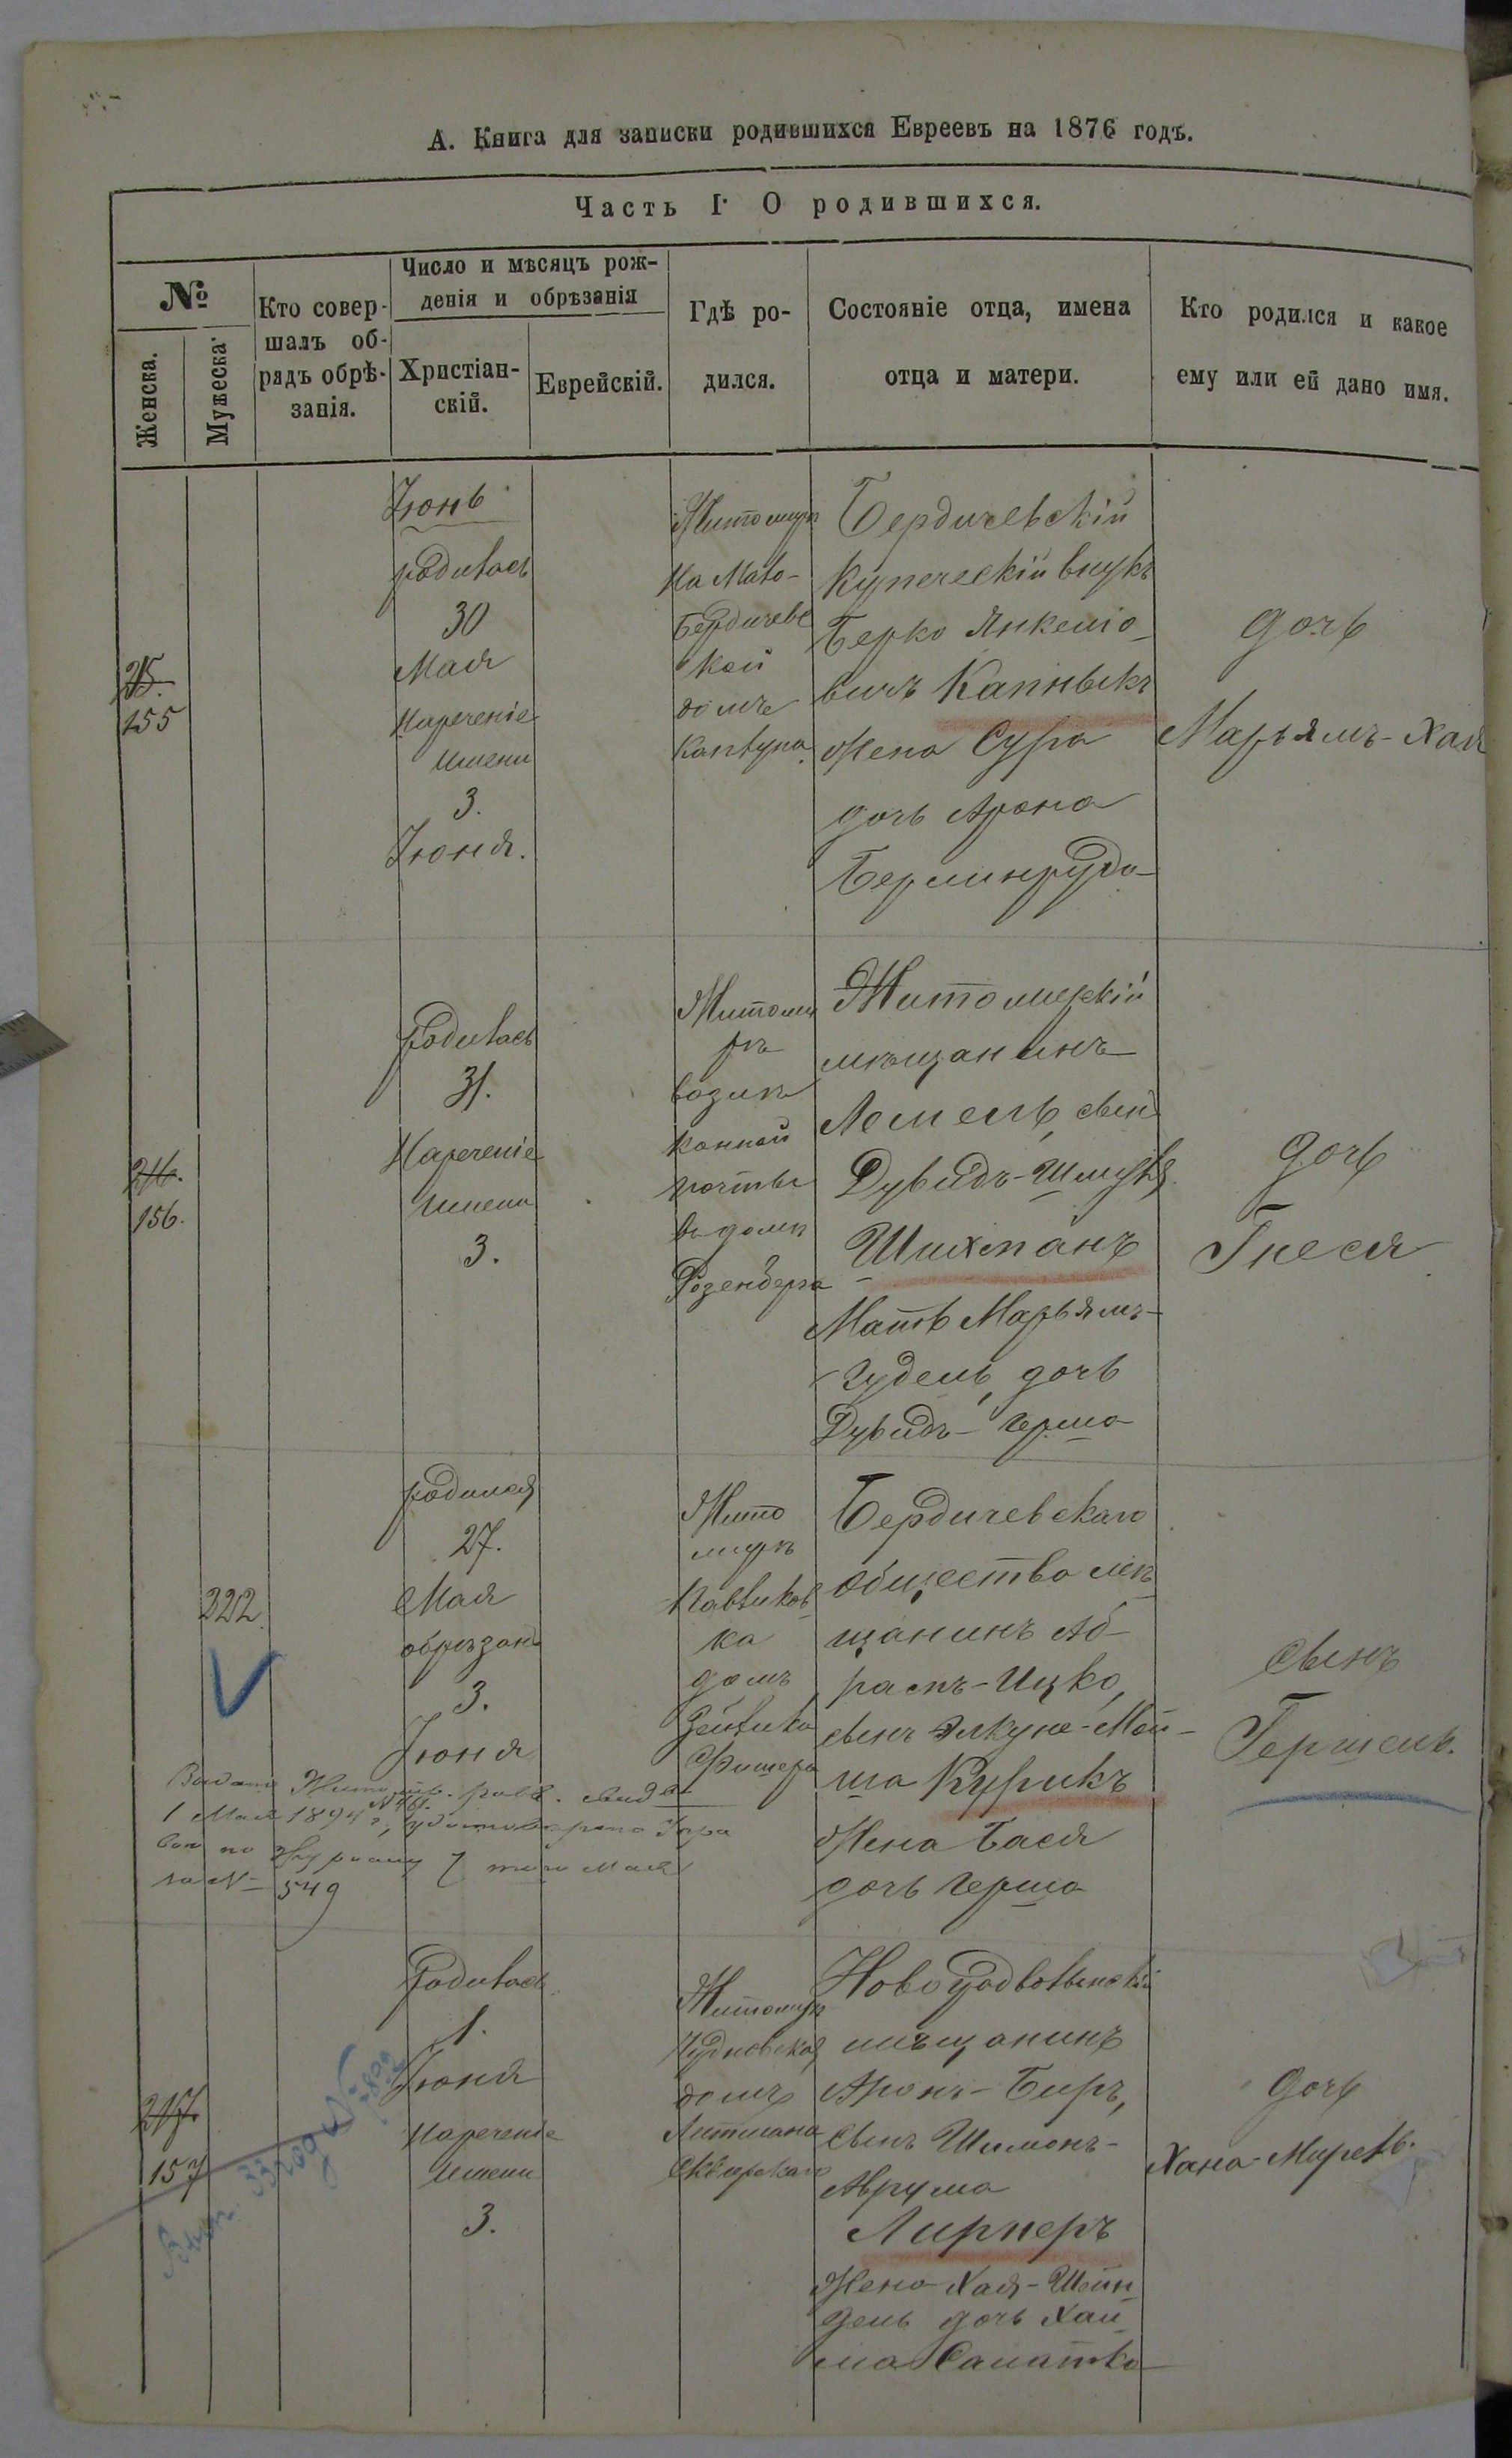 А. Книга для записки родившихся Евреевъ на 1876 годъ.
Часть I. О родившихся.
№
Женска.
Мужеска.
Кто совер-
шалъ об-
рядъ обрѣ-
занія.
Число и мѣсяцъ рож-
денія и обрѣзанія
Христіан-
скій.
Еврейскій.
Гдѣ ро-
дился.
Состояніе отца, имена
отца и матери.
Кто родился и какое
ему или ей дано имя.
215.
155
Іюнь
родилась
30
Мая
Нареченіе
имени
3.
Іюня.
Житомиръ
На Мало-
Бердичевс
кой
домъ
Каплуна
Бердичевскій
Купеческій внукъ
Берко Янкеліо-
вичъ Капныкъ
Жена Сура
дочь Арона
дочь
Марьямъ-Хая
216.
156.
родилась
31.
Нареченіе
имени
3.
Житоми
ръ
возлѣ
конной
почты
въ домѣ
Розенберга
Житомирскій
мѣщанинъ
сынъ
Дувидъ-Шмуля
Шихманъ
Мать Марьямъ-
Гудель, дочь
Дувидъ-Герша
дочь
Гнеся
322.
родился
27.
Мая
обрѣзанъ
3.
Іюня
Жито
миръ
Павликов
ка
домъ
Зейлика
Фишера
Бердичевскаго
общества мѣ-
щанинъ Аб-
рамъ-Ицко,
сынъ Элкуне-Мой-
ша Курикъ
Жена Бася
дочь Герша
сынъ
Гершель.
1 Мая 1894 г,
по журналу 7 того Мая
за № 549
217.
157
Родилась
1.
Іюня
нареченіе
имени
3.
Житомиръ
Чудновская
домъ
Литмана
Сквирскаго
Новоградволынскій
мѣщанинъ
Аронъ-Беръ,
сынъ Шимонъ-
Аврума
Лирнеръ
Жена Хая-Шейн-
дель дочь Хаи-
ма
дочь
Хана-Мирель.